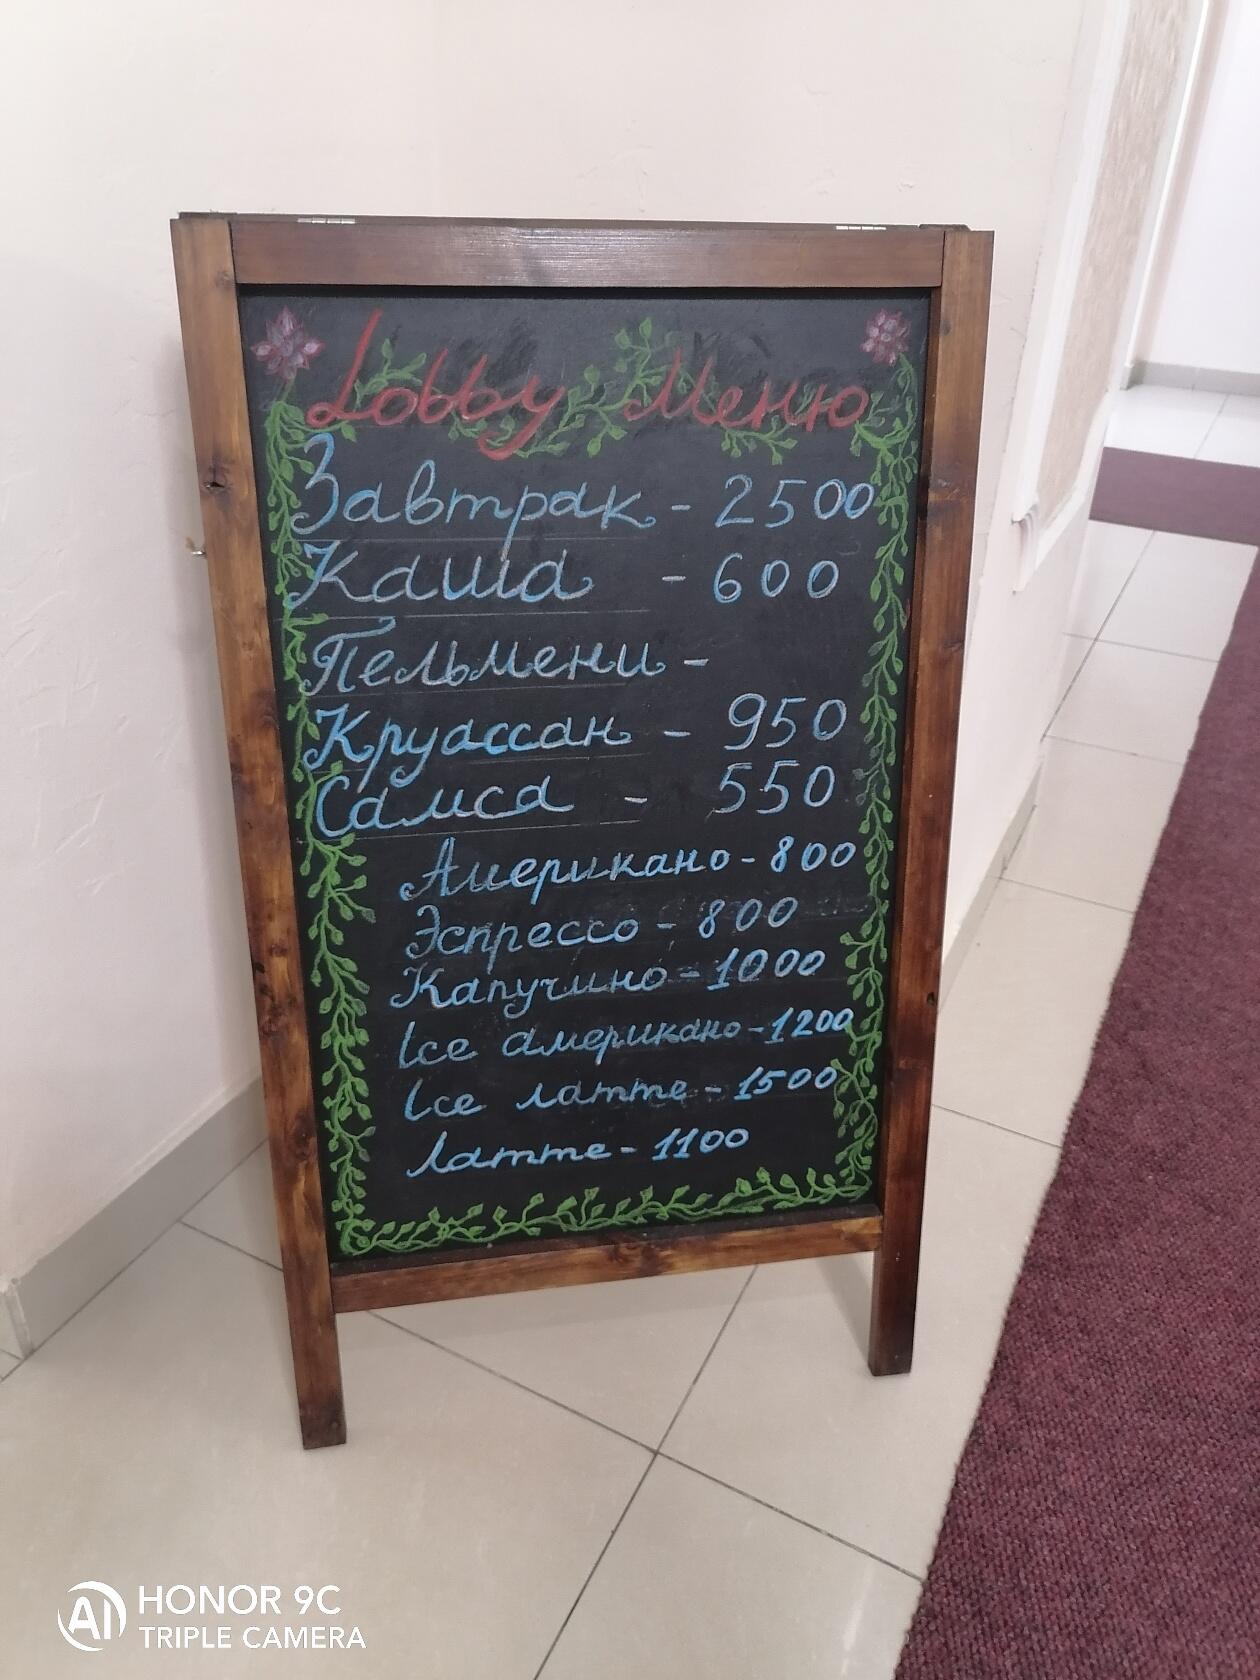 Lobby Меню
Завтрак - 2500
Каша - 600
Пельмени -
Круассан - 950
Самса - 550
Американо - 800
Эспрессо - 800
Капучино - 1000
Ice американо - 1200
Ice латте - 1500
Латте - 1100
AI HONOR 9C
TRIPLE CAMERA